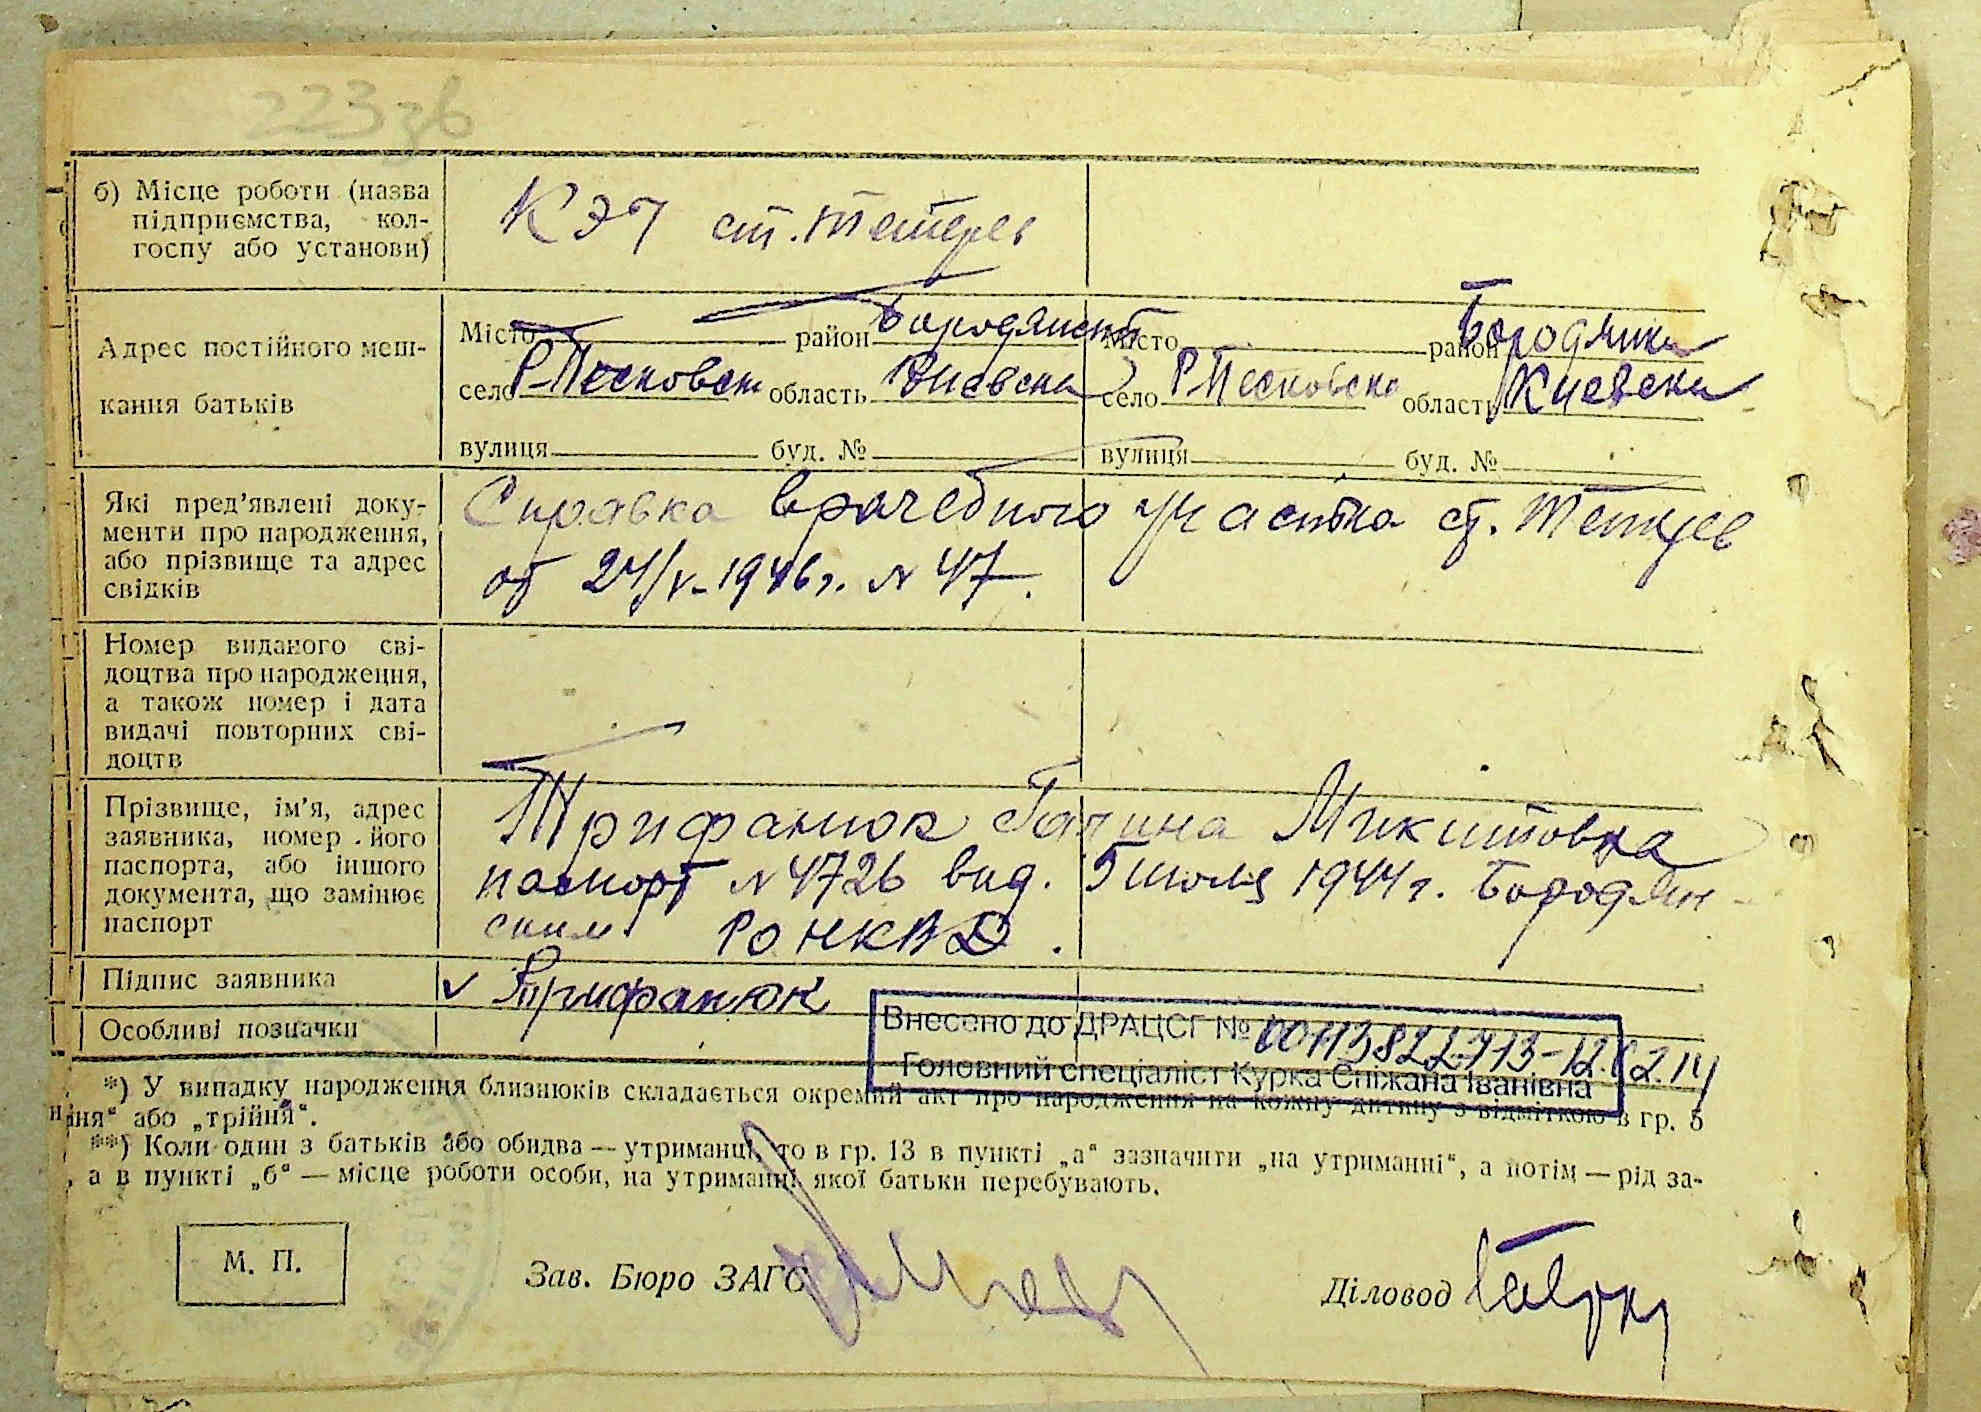 223зв
б) Місце роботи (назва
підприємства, кол-
госпу або установи)
КЭЧ ст. Тетерев
Адрес постійного меш-
кання батьків
Місто район Бородянский
село Р-Песковск область Киевска
вулиця буд. №
Місто район Бородянски
село Р-Песковска область Киевски
вулиця буд. №
Які пред'явлені доку-
менти про народження,
або прізвище та адрес
свідків
Справка врачебного участка ст. Тетерев
от 24/V-1946 г. N 47.
Номер виданого сві-
доцтва про народження,
а також номер і дата
видачі повторних сві-
доцтв
Прізвище, ім'я, адрес
заявника, номер його
паспорта, або іншого
документа, що замінює
паспорт
Трифанюк Галина Микитовна
паспорт N 4726 выд. 5 июля 1944 г. Бородян-
ским РОНКВД.
Підпис заявника
Трифанюк
Особливі позначки
Внесено до ДРАЦСГ № 00113822713-12.02.14
Головний спеціаліст Курка Сніжана Іванівна
*) У випадку народження близнюків складається окремий акт про народження на кожну дитину з відміткою в гр. 5
ня“ або „трійня“.
**) Коли один з батьків або обидва — утриманці, то в гр. 13 в пункті „а“ зазначити „на утриманні“, а потім — рід за-
, а в пункті „б“ — місце роботи особи, на утриманні якої батьки перебувають.
М. П.
Зав. Бюро ЗАГС
Діловод